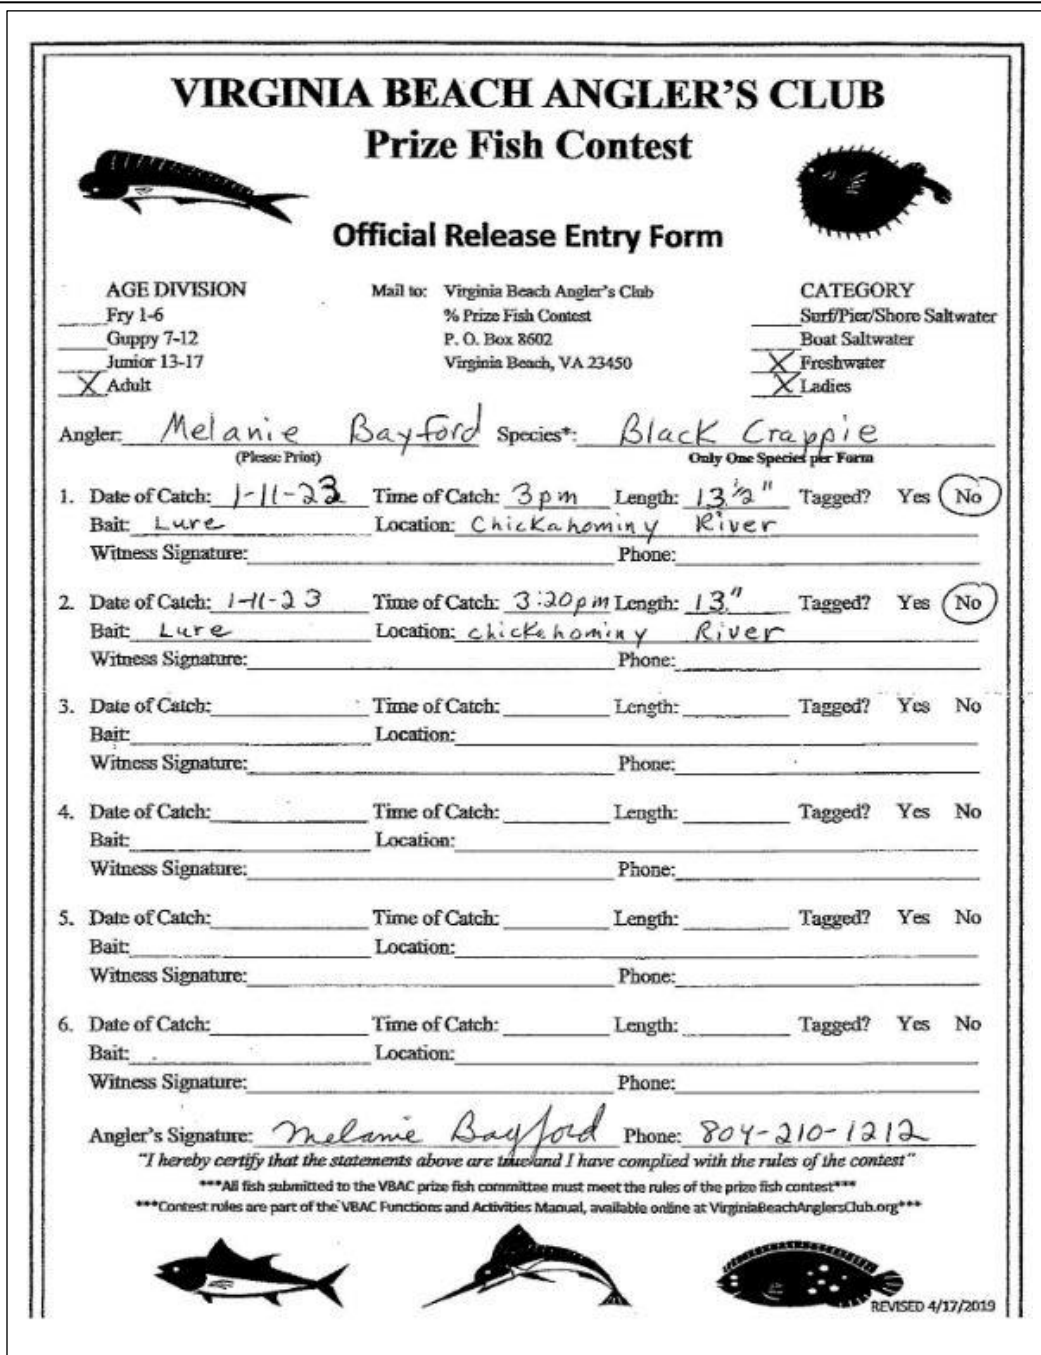 VIRGINIA BEACH ANGLER'S CLUB
Prize Fish Contest
Official Release Entry Form
AGE DIVISION
___Fry 1-6
___Guppy 7-12
___Junior 13-17
X Adult
Mail to: Virginia Beach Angler's Club
% Prize Fish Contest
P. O. Box 8602
Virginia Beach, VA 23450
CATEGORY
___Surf/Pier/Shore Saltwater
___Boat Saltwater
X Freshwater
X Ladies
Angler: Melanie Bayford Species*: Black Crappie
(Please Print) Only One Species per Form
1. Date of Catch: 1-11-23 Time of Catch: 3pm Length: 13 1/2" Tagged? Yes No
Bait: Lure Location: Chickahominy River
Witness Signature: Phone:
2. Date of Catch: 1-11-23 Time of Catch: 3:20pm Length: 13" Tagged? Yes No
Bait: Lure Location: Chickahominy River
Witness Signature: Phone:
3. Date of Catch: Time of Catch: Length: Tagged? Yes No
Bait: Location:
Witness Signature: Phone:
4. Date of Catch: Time of Catch: Length: Tagged? Yes No
Bait: Location:
Witness Signature: Phone:
5. Date of Catch: Time of Catch: Length: Tagged? Yes No
Bait: Location:
Witness Signature: Phone:
6. Date of Catch: Time of Catch: Length: Tagged? Yes No
Bait: Location:
Witness Signature: Phone:
Angler's Signature: Melanie Bayford Phone: 804-210-1212
"I hereby certify that the statements above are true and I have complied with the rules of the contest"
***All fish submitted to the VBAC prize fish committee must meet the rules of the prize fish contest***
***Contest rules are part of the VBAC Functions and Activities Manual, available online at VirginiaBeachAnglersClub.org***
REVISED 4/17/2019